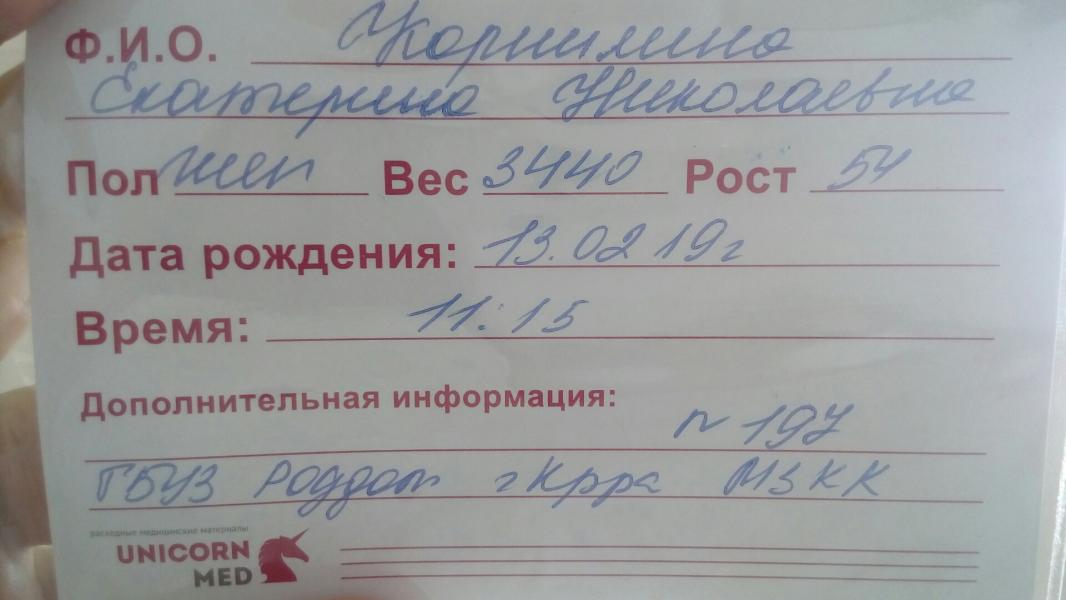 Ф.И.О.
Екатерина Николаевна
Пол жен Вес 3440 Рост 54
Дата рождения: 13.02 19г
Время: 11:15
Дополнительная информация:
n 197
ГБУЗ Роддом г Крра МЗ КК
расходные медицинские материалы
UNICORN
MED